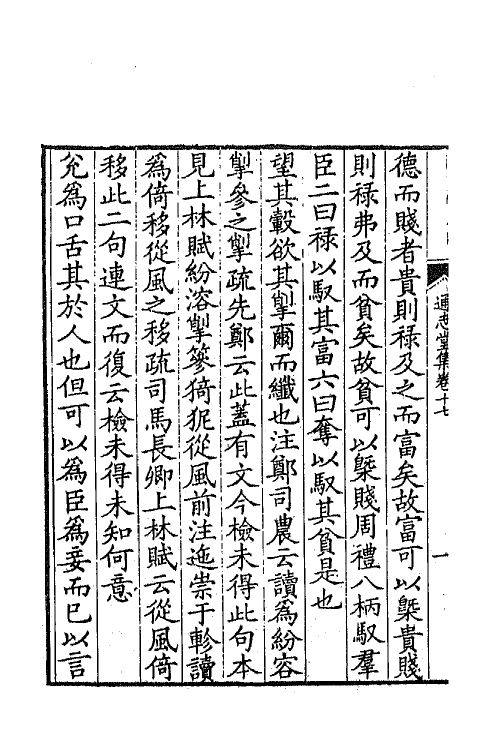 通志堂集卷十七
一
德而賤者貴則祿及之而富矣故富可以槩貴賤
則祿弗及而貧矣故貧可以槩賤周禮八柄馭羣
臣二曰祿以馭其富六曰奪以馭其貧是也
望其轂欲其掣爾而纖也注鄭司農云讀爲紛容
掣參之掣疏先鄭云此蓋有文今檢未得此句本
見上林賦紛溶掣蔘猗狔從風前注迆崇于軫讀
爲倚移從風之移疏司馬長卿上林賦云從風倚
移此二句連文而復云檢未得未知何意
兊爲口舌其於人也但可以爲臣爲妾而巳以言